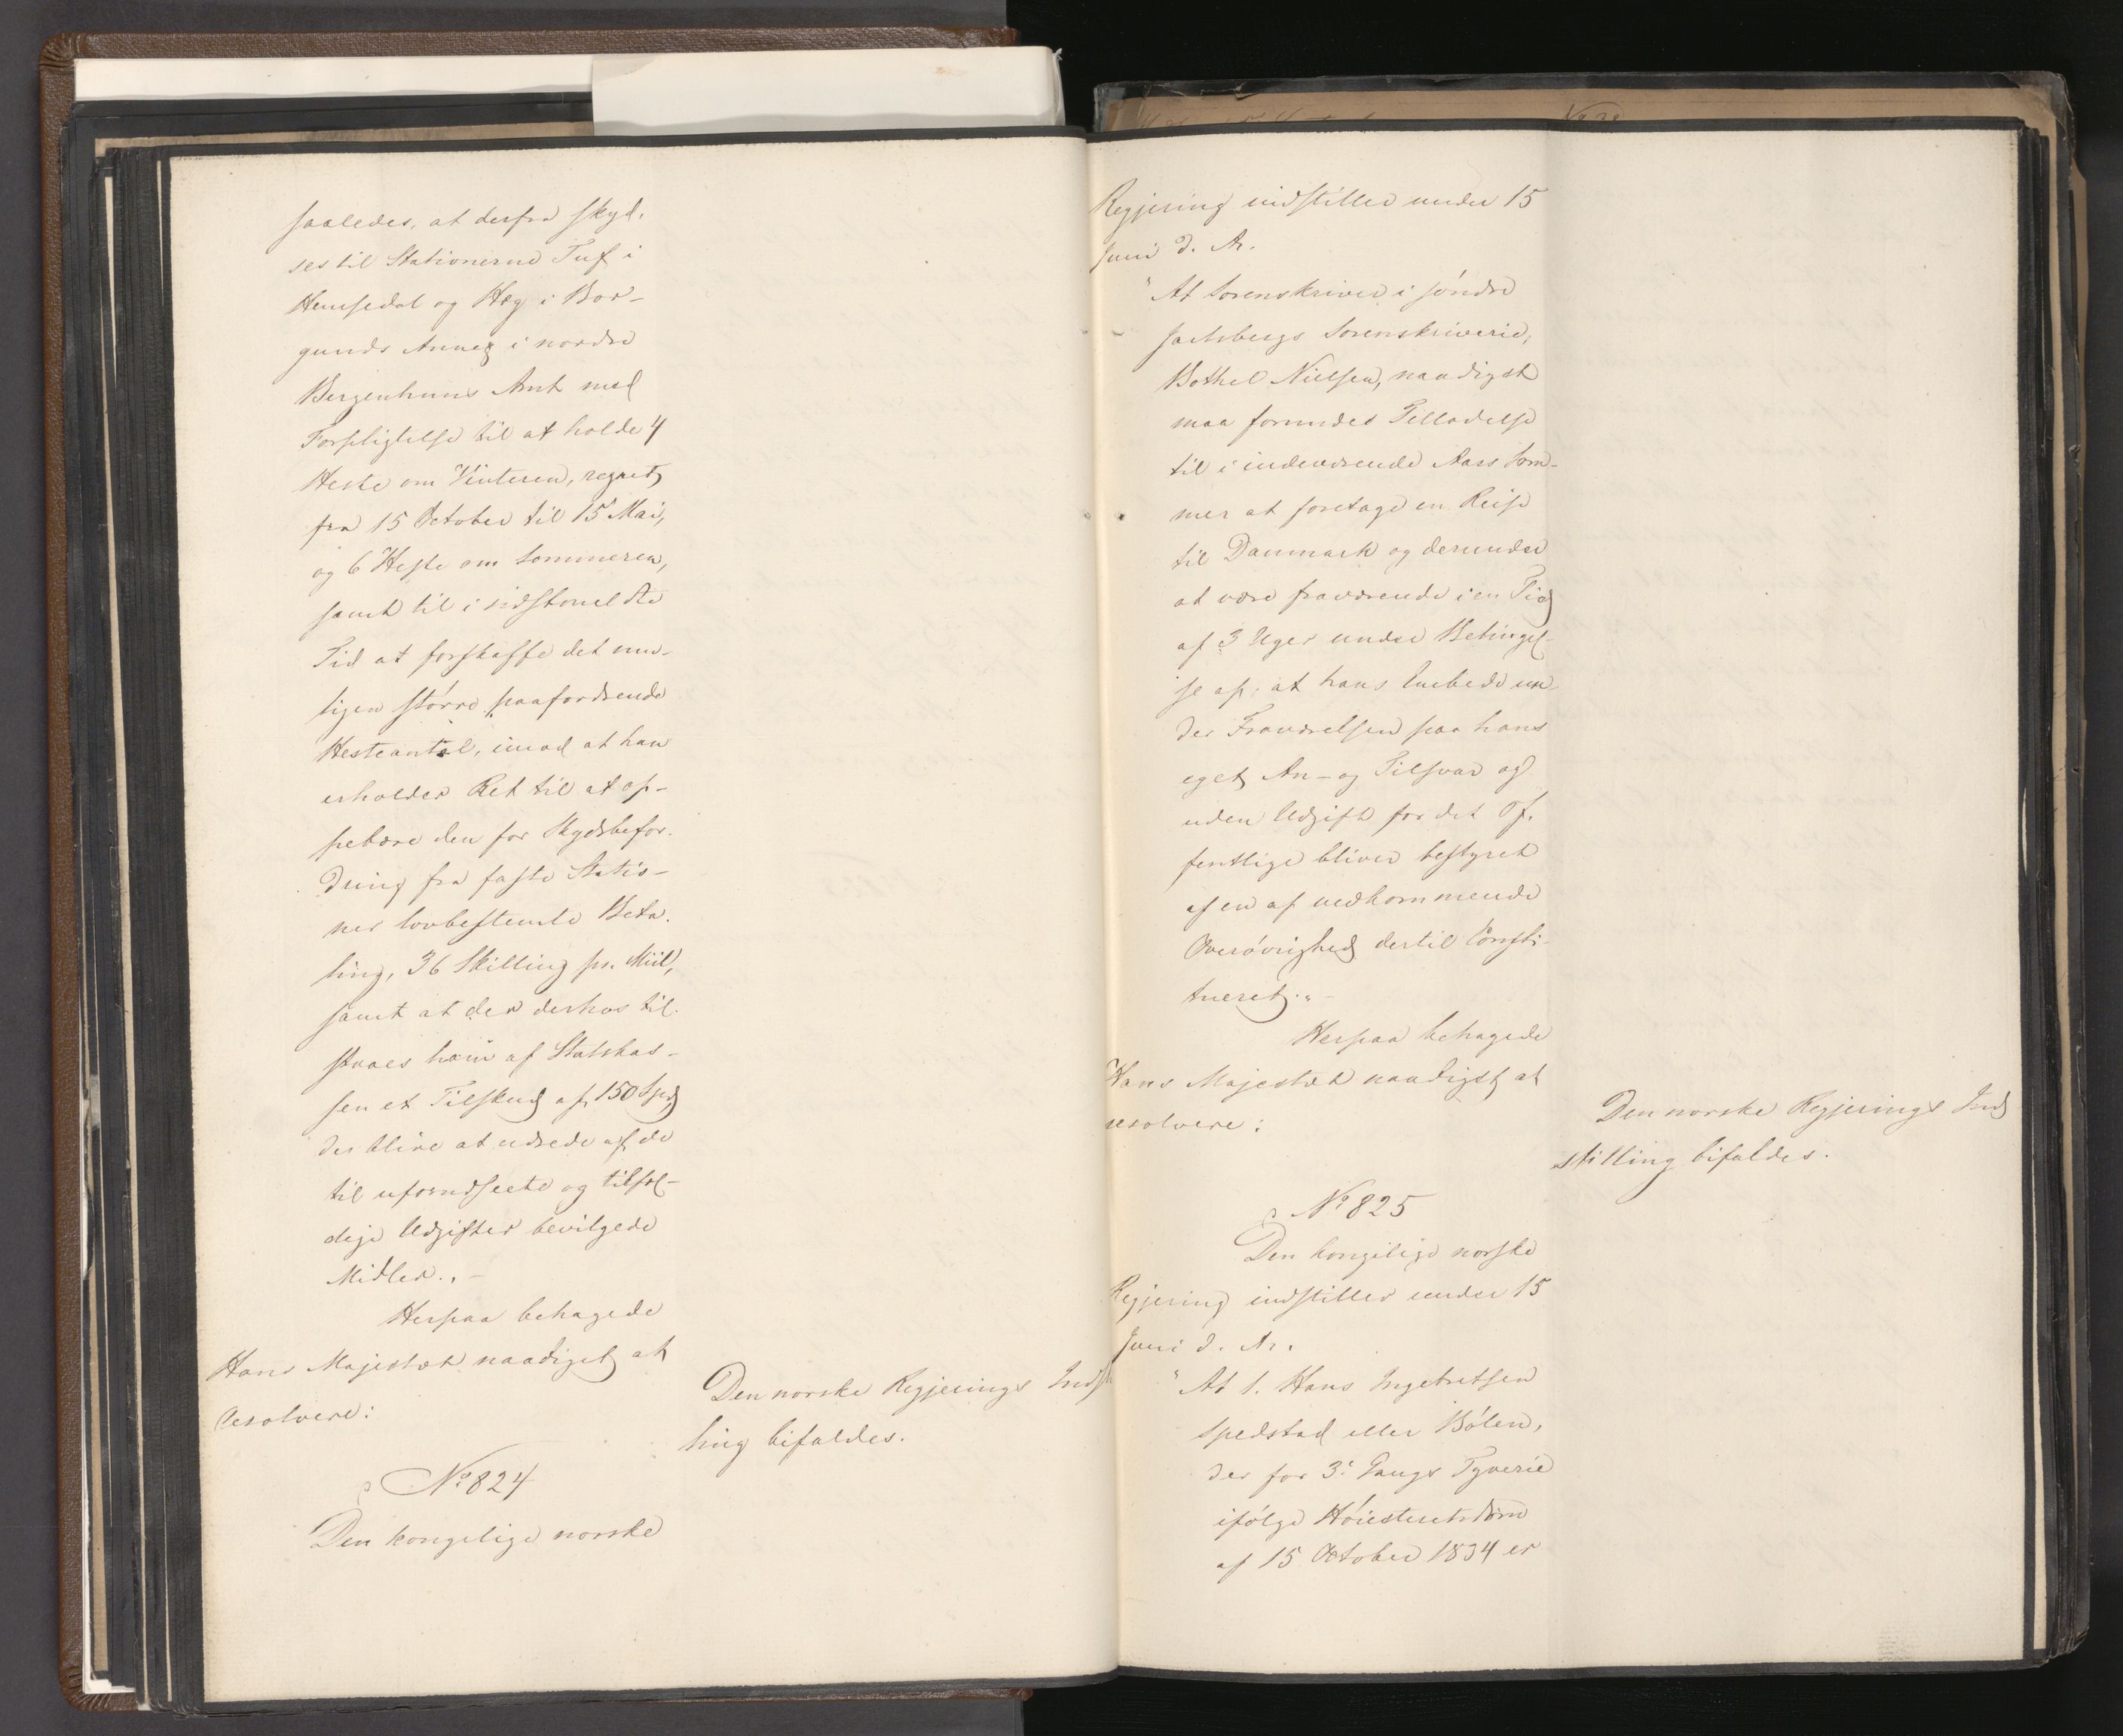 saaledes, at derfra skyd,
ses til Stationerne Tuf i
Hemsedal og Hæg i Bor-
gunds Annex i nordre
Bergenhuus Amt med
Forpligtelse til at holde 4
Heste om Vinteren, regnet
fra 15 October til 15 Mai,
og 6 Heste om Sommeren,
samt til i sidstmeldte
Tid at forskaffe det mu-
ligen större paafordrende
Hesteantal, imod at han
erholder Ret til at op-
pebære den for Skydsbefor-
dring fra faste Statio-
ner lovbestemte Beta-
ling, 36 Skilling pr. Miil,
samt at der derhos til-
staaes ham af Statskas-
sen et Tilskud af 150 Spd,
der blive at udrede af de
til uforudseete og tilfæl-
dige Udgifter bevilgede
Midler." -
Herpaa behagede
Hans Majestæt naadigst at
resolvere:
Den norske Regjerings Indstil
ling bifaldes.
No 824
Den kongelige norske
Regjering indstiller under 15
Juni d. A.
"At Sorenskriver i söndre
Jarlsbergs Sorenskriverie,
Bothel Nielsen, naadigst
maa forundes Tilladelse
til i indeværende Aars Som-
mer at foretage en Reise
til Danmark og derunder
at være fraværende i en Tid
af 3 Uger under Betingel-
se af, at hans Embede un-
der Fraværelsen paa hans
eget An- og Tilsvar og
uden Udgift for det Of-
fentlige bliver bestyret
af en af vedkommende
Overövrighed dertil Consti-
tueret." -
Herpaa behagede
Hans Majestæt naadigst at
resolvere:
Den norske Regjerings Ind
stilling bifaldes.
No 825
Den kongelige norske
Regjering indstiller under 15
Juni d. A.
"At 1. Hans Ingebretsen
Spedstad eller Bölen,
der for 3die Gangs Tyverie
ifölge Höiesteretsdom
af 15 October 1834 er